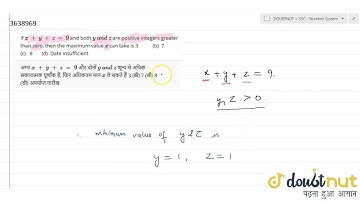 3638969
DOUBTNUT > SSC - Number System
If x + y + z = 9 and both y and z are positive integers greater
than zero, then the maximum value x can take is 3 (b) 7
(c) 8 (d) Date insufficient
अगर x + y + z = 9 और दोनों y and z शून्य से अधिक
सकारात्मक पूर्णांक हैं, फिर अधिकतम मान x ले सकते हैं 3 (बी) 7 (सी) 8
(डी) अपर्याप्त तारीख
x + y + z = 9.
y, z > 0.
∴ minimum value of y & z is
y = 1, z = 1
doubtnut
पढ़ना हुआ आसान